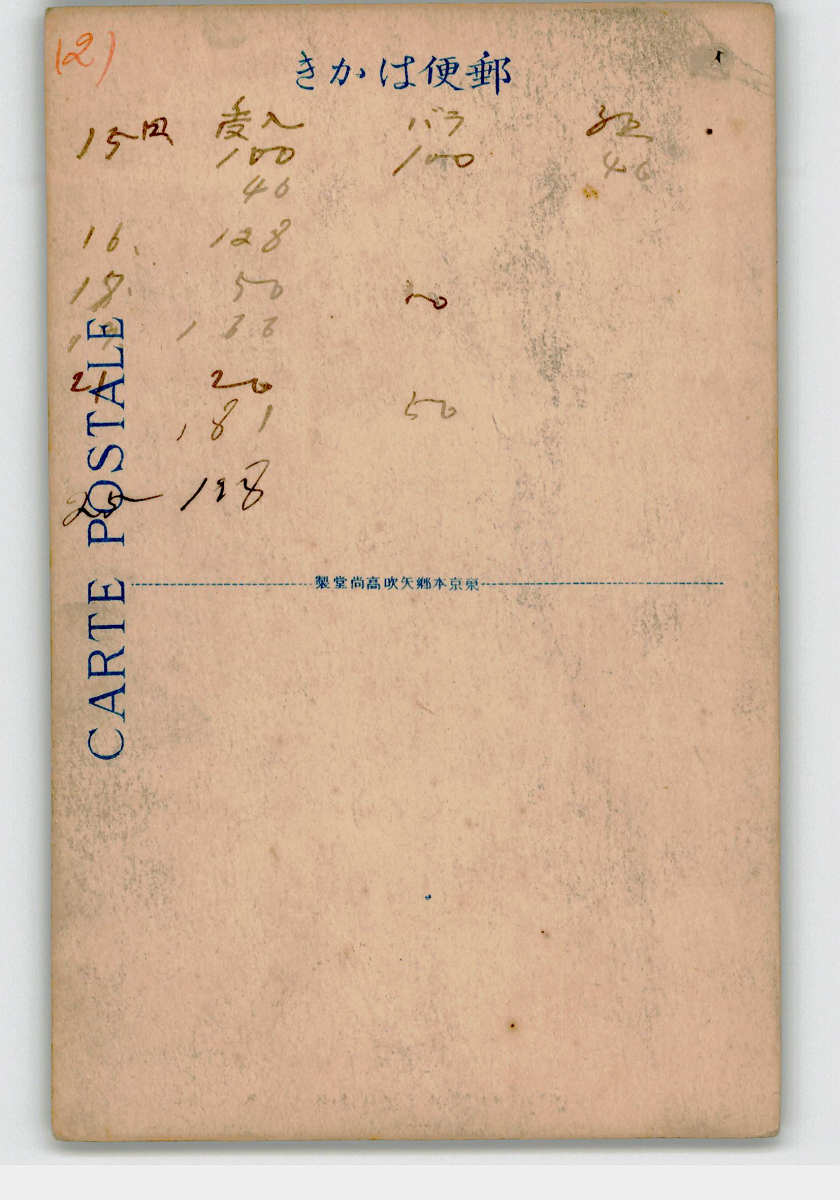 (2)
きかは便郵
15日 受入 バラ
100 100 40
40
16. 128
18. 50 10
19. 166
21 20
181 50
25 128
製堂尚高吹矢郷本京東
CARTE POSTALE